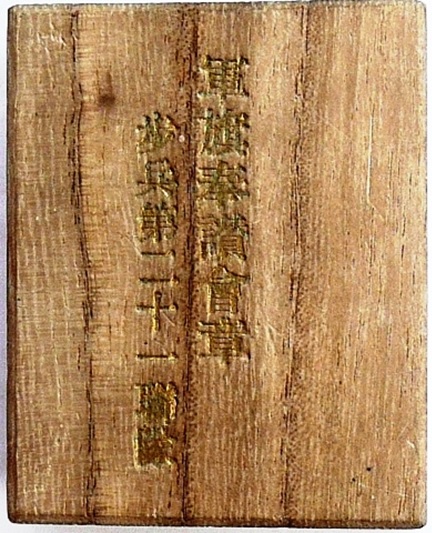 軍旗奉讃會章
歩兵第二十一聯隊